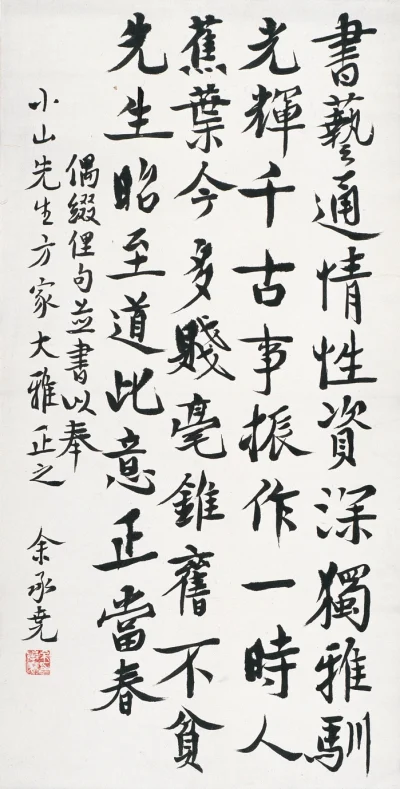 書藝通情性資深獨雅馴
光輝千古事振作一時人
蕉葉今多賤毫錐舊不貧
先生昭至道此意正當春
偶綴俚句並書以奉
小山先生方家大雅正之
余承堯